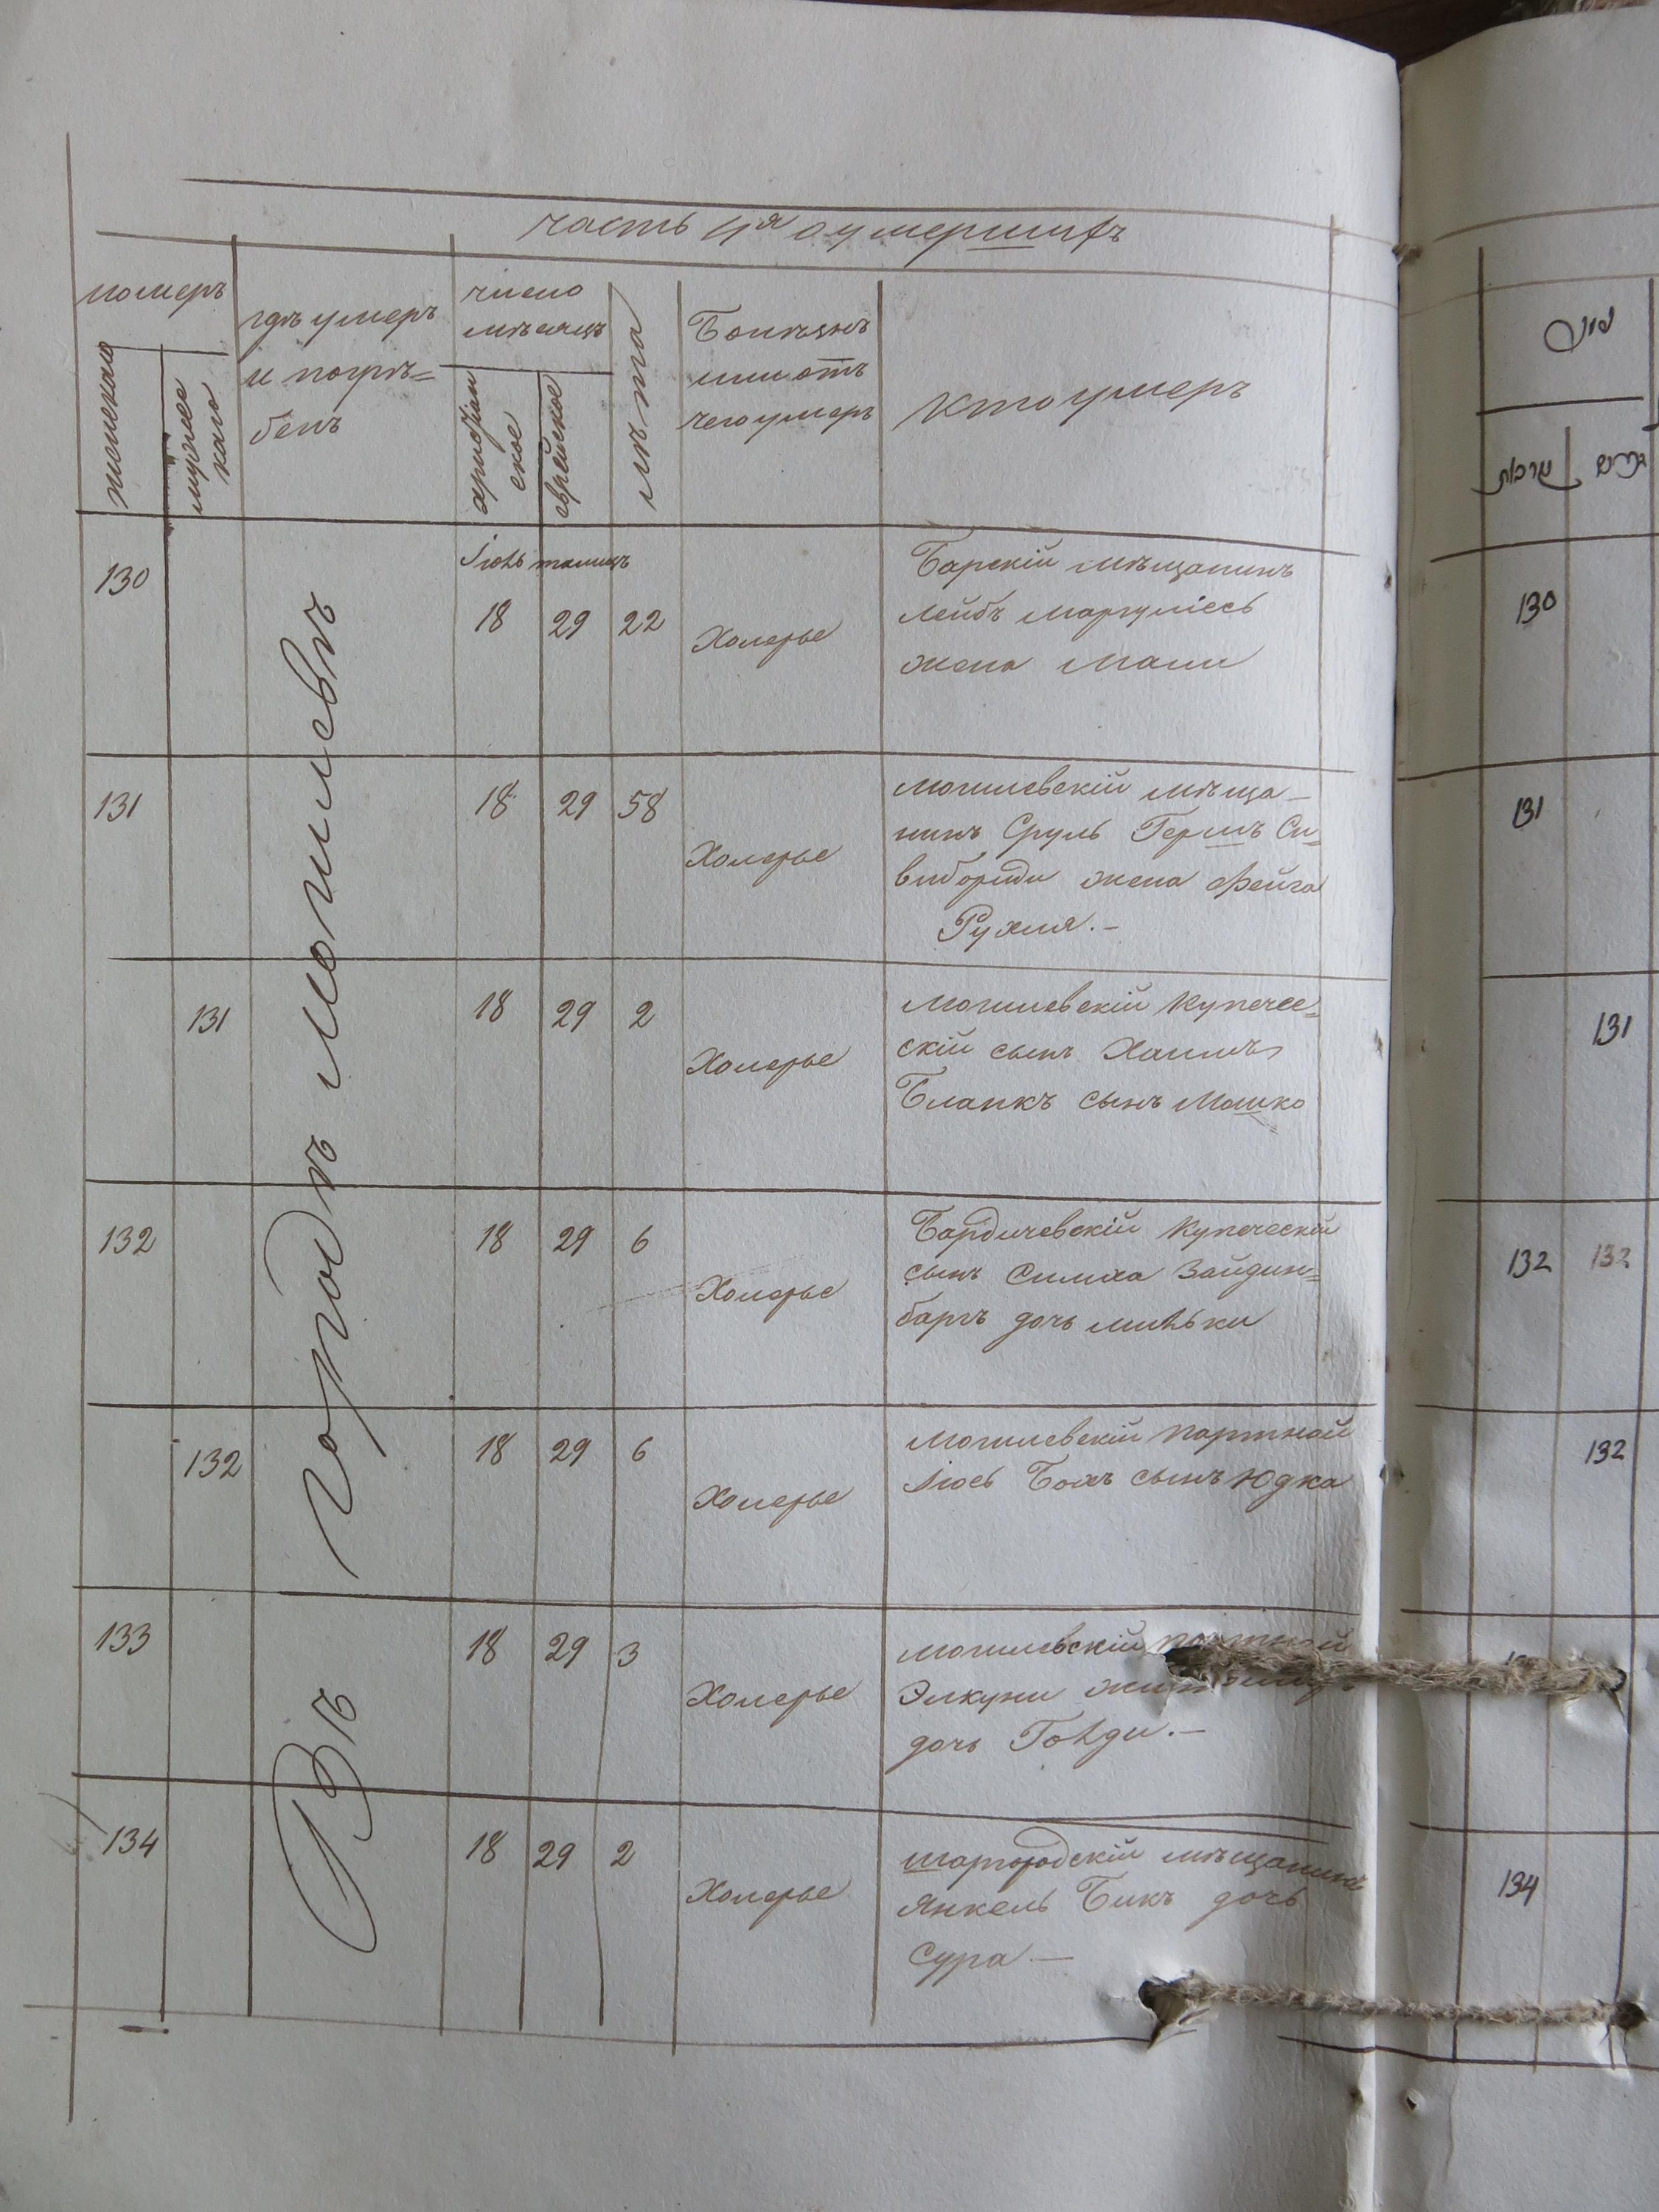 часть 4я о умершихъ
номеръ
женскаго
мужес
каго
гдѣ умеръ
и погрѣ=
бенъ
число
мѣсяцъ
христіан
ское
еврейское
лѣта
Болѣзнь
или отъ
чего умеръ
Кто умеръ
Въ городѣ могилевѣ
130
Іюль тамузъ
18 29 22
Холерье
Барскій мѣщанинъ
Лейбъ Маргуліесъ
жена Мали
131
18 29 58
Холерье
могилевскій мѣща-
нинъ Сруль Гершъ
жена Фейга
Рухля.-
131
18 29 2
Холерье
могилевскій купечес=
скій сынъ Хаимъ
Бланкъ сынъ Мошко
132
18 29 6
Холерье
Бардичевскій купеческій
сынъ Симха Зайдин=
баргъ дочь миньки
132
18 29 6
Холерье
могилевскій портной
Іюсь Бохъ сынъ Юдка
133
18 29 3
Холерье
могилевскій портной
Элкуни
дочь Гольди.-
134
18 29 2
Холерье
шаргородскій мѣщанинъ
Янкель Бикъ дочь
Сура -
130
131
131
132 132
132
134